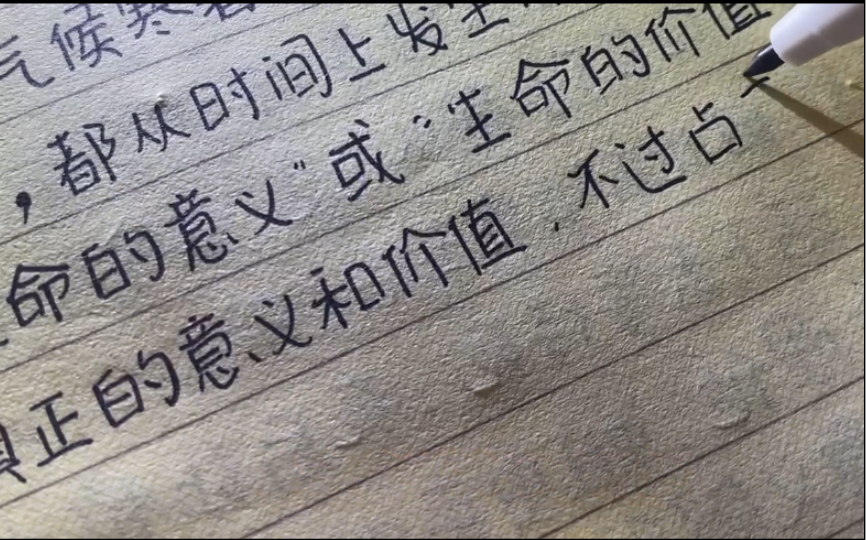 气候寒暑
，都从时间上发生
命的意义”或“生命的价值
真正的意义和价值，不过占